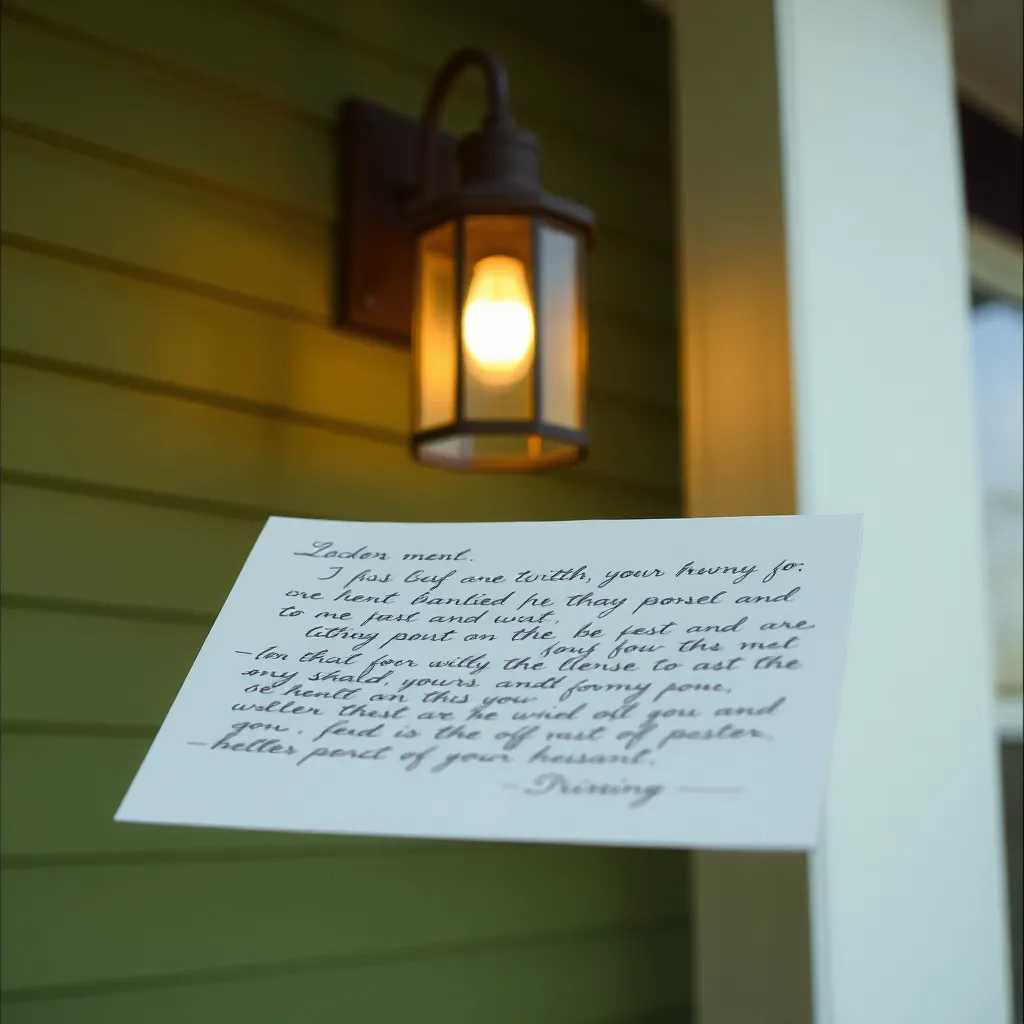 Lodon ment.
I fas buf are twitth, your hwny fo:
are hent bantied he thay porsel and
to me fast and wat.
tithay post on the be fest and are
fouf fow ths met
–lon that forr willy the llense to ast the
ony shald, yours andt formy pour.
se hentt an this you
waller thest are he wind oft you and
gou. feud is the off mast of pester.
–hettes perct of your hensant.
– Prissing —